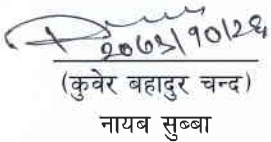 २०७९/१०/२६
(कुवेर बहादुर चन्द)
नायब सुब्बा